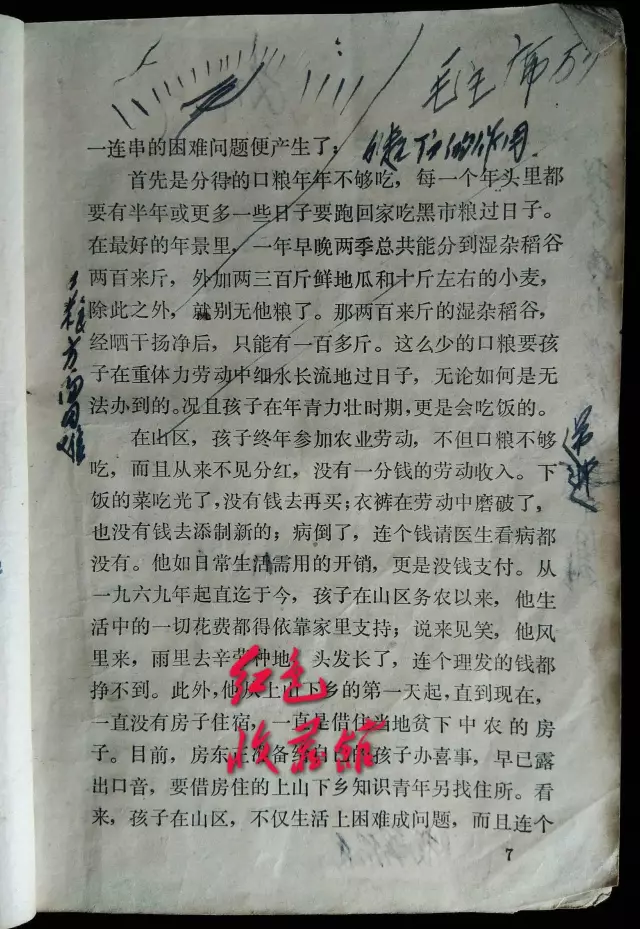 毛主席的
一连串的困难问题便产生了：
首先是分得的口粮年年不够吃，每一个年头里都
要有半年或更多一些日子要跑回家吃黑市粮过日子。
在最好的年景里，一年早晚两季总共能分到湿杂稻谷
两百来斤，外加两三百斤鲜地瓜和十斤左右的小麦，
除此之外，就别无他粮了。那两百来斤的湿杂稻谷，
经晒干扬净后，只能有一百多斤。这么少的口粮要孩
子在重体力劳动中细水长流地过日子，无论如何是无
法办到的。况且孩子在年青力壮时期，更是会吃饭的。
在山区，孩子终年参加农业劳动，不但口粮不够
吃，而且从来不见分红，没有一分钱的劳动收入。下
饭的菜吃光了，没有钱去再买；衣裤在劳动中磨破了，
也没有钱去添制新的；病倒了，连个钱请医生看病都
没有。他如日常生活需用的开销，更是没钱支付。从
一九六九年起直迄于今，孩子在山区务农以来，他生
活中的一切花费都得依靠家里支持；说来见笑，他风
里来，雨里去辛劳种地，头发长了，连个理发的钱都
挣不到。此外，他从上山下乡的第一天起，直到现在，
一直没有房子住宿，一直是借住当地贫下中农的房
子。目前，房东正准备给自己的孩子办喜事，早已露
出口音，要借房住的上山下乡知识青年另找住所。看
来，孩子在山区，不仅生活上困难成问题，而且连个
7
红色
收藏馆